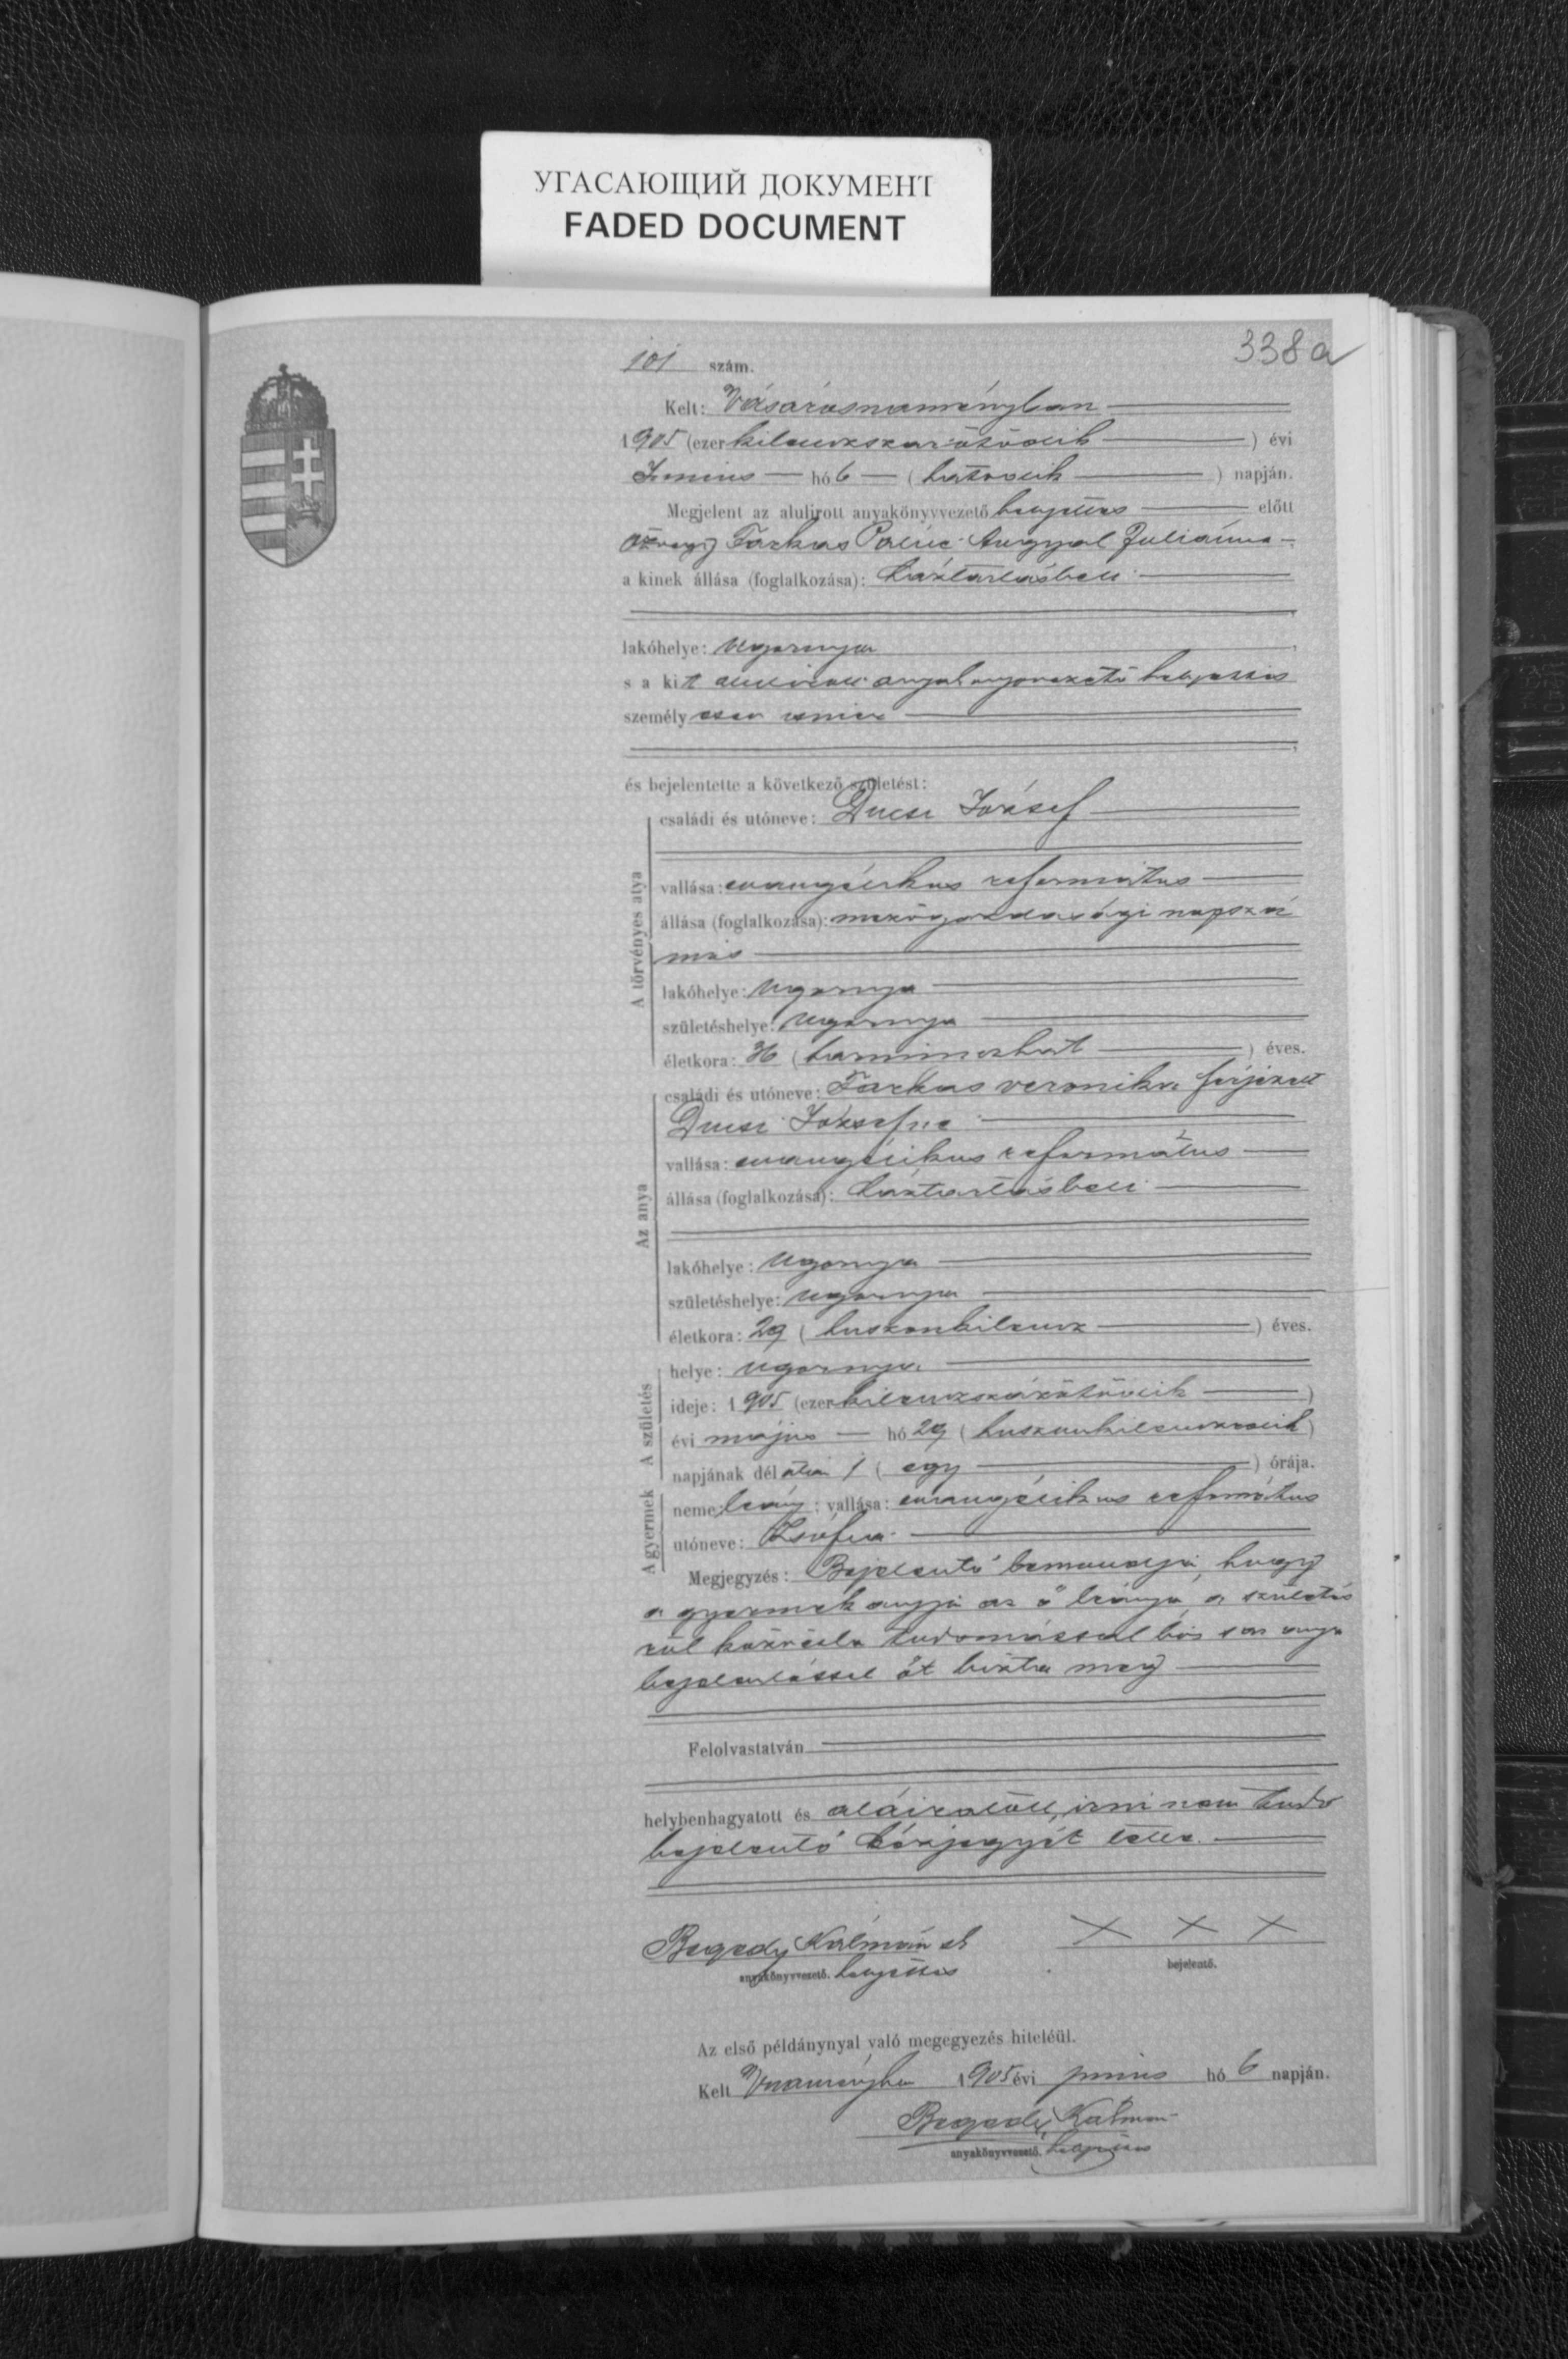 УГАСАЮЩИЙ ДОКУМЕНТ
FADED DOCUMENT
338a
101 szám.
Kelt: Vásárosnaményban
1905 (ezer kilenczszázötödik ) évi
Junius hó 6 ( hatodik ) napján.
Megjelent az alulirott anyakönyvvezető helyettes előtt
özvegy Farkas Pálné Angyal Juliánna
a kinek állása (foglalkozása): háztartásbeli
lakóhelye: Ugornya
s a kit alulirott anyakönyvvezető helyettes
személyesen ismer
és bejelentette a következő születést:
A törvényes atya
családi és utóneve: Ducsi József
vallása: evangélikus református
állása (foglalkozása): mezőgazdasági napszá
mos
lakóhelye: Ugornya
születéshelye: Ugornya
életkora: 36 ( harminczhat ) éves.
Az anya
családi és utóneve: Farkas Veronika férjezett
Ducsi Józsefné
vallása: evangélikus református
állása (foglalkozása): háztartásbeli
lakóhelye: Ugornya
születéshelye: Ugornya
életkora: 29 ( huszonkilencz ) éves.
A születés
helye: Ugornya
ideje: 1905 (ezer kilenczszázötödik )
évi május hó 29 ( huszonkilenczedik )
napjának dél után 1 ( egy ) órája.
A gyermek
neme: leány; vallása: evangélikus református
utóneve: Zsófia
Megjegyzés: Bejelentő bemondja, hogy
a gyermek anyja az ő leánya, a születés
ről tudomással bir s az anya
bejelentéssel őt bizta meg
Felolvastatván
helybenhagyatott és aláiratott, irni nem tudó
bejelentő kézjegyét tette.
Bagady Kálmán sk
anyakönyvvezető. helyettes
X X X
bejelentő.
Az első példánynyal való megegyezés hiteléül.
Kelt Vnaményban 1905 évi junius hó 6 napján.
Bagady Kálmán
anyakönyvvezető. helyettes